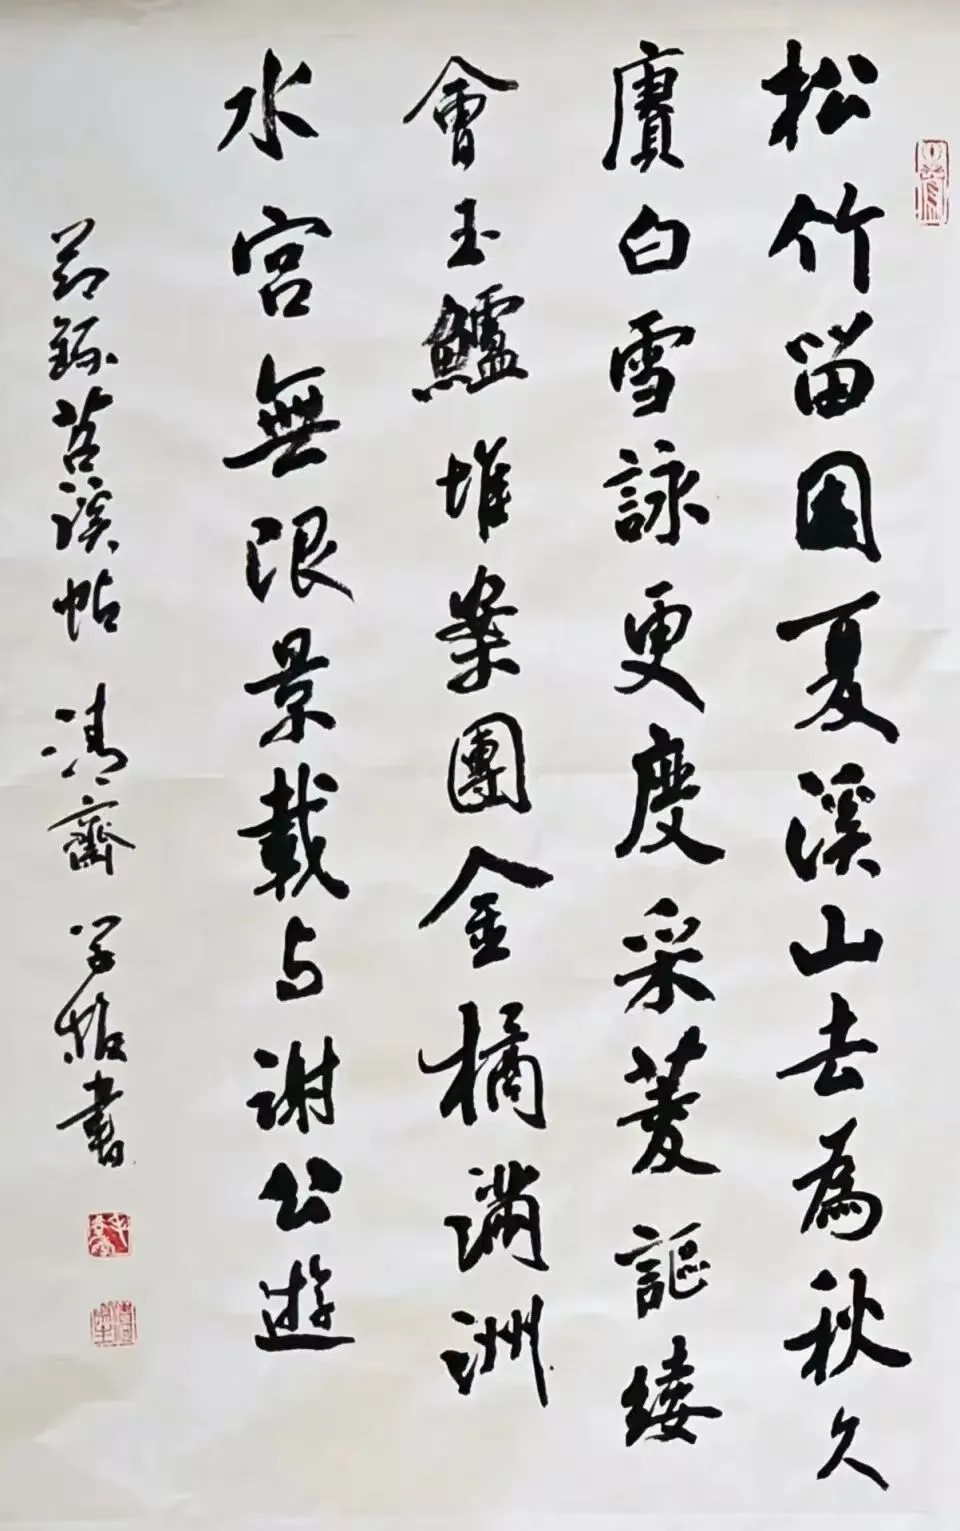 松竹留因夏溪山去為秋久
賡白雪詠更度采菱謳縷
會玉鱸堆案團金橘滿洲
水宮無限景載与謝公遊
节録苕溪帖 清齋 学振書